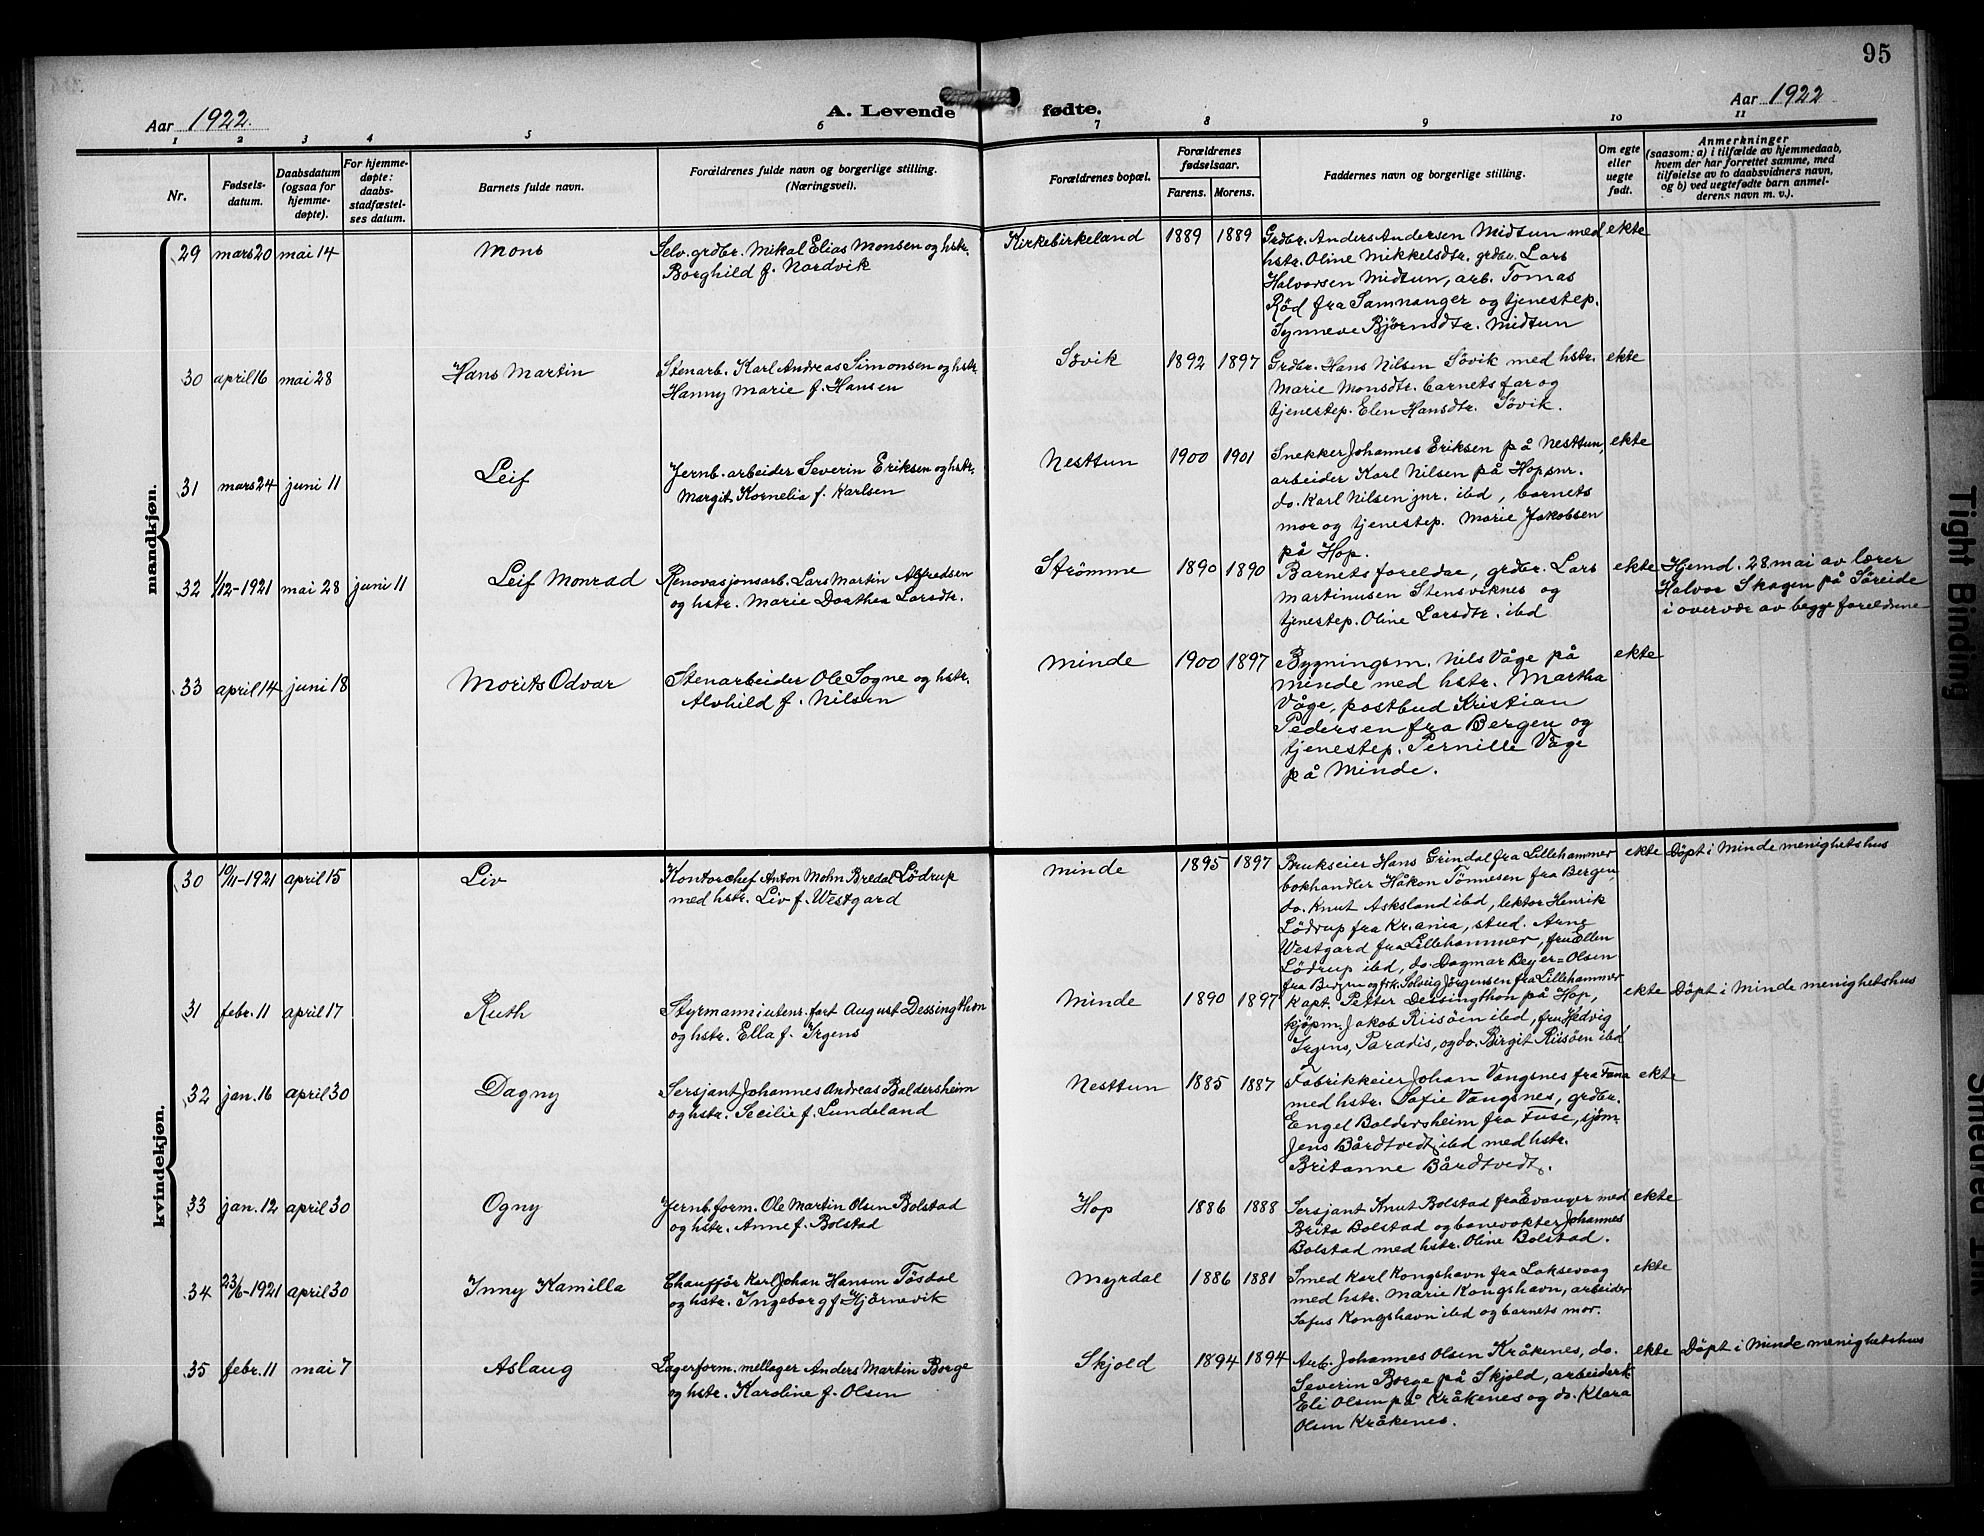 95
Aar 1922.
A. Levende fødte.
Aar 1922
1 2 3 4 5 6 7 8 9 10 11
Nr.
Fødsels-
datum.
Daabsdatum
(ogsaa for
hjemme-
døpte).
For hjemme-
døpte:
daabs-
stadfæstel-
ses datum.
Barnets fulde navn.
Forældrenes fulde navn og borgerlige stilling.
(Næringsvei).
Forældrenes bopæl.
Forældrenes
fødselsaar.
Farens. Morens.
Faddernes navn og borgerlige stilling.
Om egte
eller
uegte
født.
Anmerkninger
(saasom: a) i tilfælde av hjemmedaab,
hvem der har forrettet samme, med
tilføielse av to daabsvidners navn,
og b) ved uegtefødte barn anmel-
derens navn m. v.).
mandkjøn.
29 mars 20 mai 14 Mons
Selv. grdbr. Mikal Elias Monsen og hstr.
Borghild f. Nordvik
Kirkebirkeland 1889 1889
Grdbr. Anders Andersen Midtun med
hstr. Oline Mikkelsdtr. grdbr. Lars
Halvorsen Midtun, arb. Tomas
Rød fra Samnanger og tjenestep.
Synneve Bjørnsdtr. Midtun
ekte
30 april 16 mai 28 Hans Martin
Stenarb. Karl Andreas Simonsen og hstr.
Hanny Marie f. Hansen
Søvik 1892 1897
Grdbr. Hans Nilsen Søvik med hstr.
Marie Monsdtr. barnets far og
tjenestep. Elen Hansdtr. Søvik.
ekte
31 mars 24 juni 11 Leif
Jernb. arbeider Severin Eriksen og hstr.
Margit Kornelia f. Karlsen
Nesttun 1900 1901
Snekker Johannes Eriksen på Nesttun,
arbeider Karl Nilsen på Hopsnr.
do. Karl Nilsen jnr. ibd, barnets
mor og tjenestep. Marie Jakobsen
på Hop.
ekte
32 1/12-1921 mai 28 juni 11 Leif Monrad
Renovasjonsarb. Lars Martin Alfredsen
og hstr. Marie Dorthea Larsdtr.
Strömme 1890 1890
Barnets foreldre, grdbr. Lars
Martinusen Stensviknes og
tjenestep. Oline Larsdtr. ibd
ekte
Hjemd. 28. mai av lærer
Halvor Skagen på Söreide
i overvær av begge foreldrene
33 april 14 juni 18 Morits Odvar
Stenarbeider Ole Sogne og hstr.
Alvhild f. Nilsen
Minde 1900 1897
Bygningsm. Nils Våge på
Minde med hstr. Martha
Våge, postbud Kristian
Pedersen fra Bergen og
tjenestep. Pernille Våge
på Minde.
ekte
kvindekjøn.
30 19/11-1921 april 15 Liv
Kontorchef Anton Mohn Bredal Lödrup
med hstr. Liv f. Westgard
Minde 1895 1897
Brukseier Hans Grindal fra Lillehammer
bokhandler Håkon Tönnesen fra Bergen,
do. Knut Asksland ibd, lektor Henrik
Lödrup fra Kr.ania, stud. Arne
Westgard fra Lillehammer, fru Ellen
Lödrup ibd, do. Dagmar Beyer=Olsen
fra Bergen og frk. Solveig Jörgensen fra Lillehammer
ekte
Döpt i Minde menighetshus
31 febr. 11 april 17 Ruth
Styrmann i utenr. fart August Dessingthon
og hstr. Ella f. Irgens
Minde 1890 1897
Kapt. Peter Dessingthon på Hop,
kjöpm. Jakob Riisöen ibd, fru Hedvig
Irgens, Paradis, og do. Birgit Riisöen ibd
ekte
Döpt i Minde menighetshus
32 jan. 16 april 30 Dagny
Sersjant Johannes Andreas Baldersheim
og hstr. Secilie f. Lundeland
Nesttun 1885 1887
Fabrikkeier Johan Vangsnes fra Fana
med hstr. Sofie Vangsnes, grdbr.
Engel Baldersheim fra Fuse, sjöm.
Jens Bårdtvedt ibd med hstr.
Britanne Bårdtvedt.
ekte
33 jan. 12 april 30 Ogny
Jernb. form. Ole Martin Olsen Bolstad
og hstr. Anne f. Bolstad
Hop 1886 1888
Sersjant Knut Bolstad fra Evanger med
Brita Bolstad og banevokter Johannes
Bolstad med hstr. Oline Bolstad.
ekte
34 23/6-1921 april 30 Inny Kamilla
Chaufför Karl Johan Hansen Tösdal
og hstr. Ingeborg f Hjörnevik
Myrdal 1886 1881
Smed Karl Kongshavn fra Laksevaag
med hstr. Marie Kongshavn, arbeider
Sofus Kongshavn ibd og barnets mor.
ekte
35 febr. 11 mai 7 Aslaug
Lagerform. mellager Anders Martin Borge
og hstr. Karoline f. Olsen
Skjold 1894 1894
Arb. Johannes Olsen Kråkenes, do.
Severin Borge på Skjold, arbeidersk
Eli Olsen på Kråkenes og do. Klara
Olsen Kråkenes.
ekte
Döpt i Minde menighetshus
Tight Binding
Smeared Ink